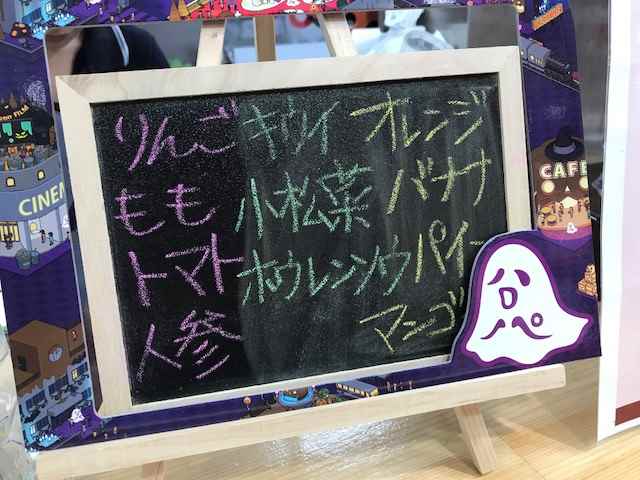 りんご
もも
トマト
人参
キウイ
小松菜
ホウレンソウ
オレンジ
バナナ
パイ
マンゴ
CINE
CAFE